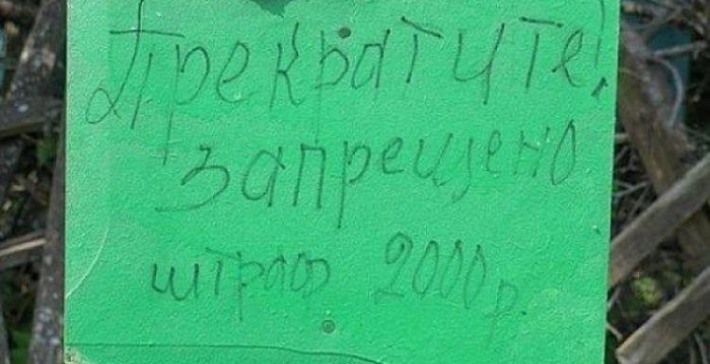 Прекратите!
запрещено
штраф 2000 р